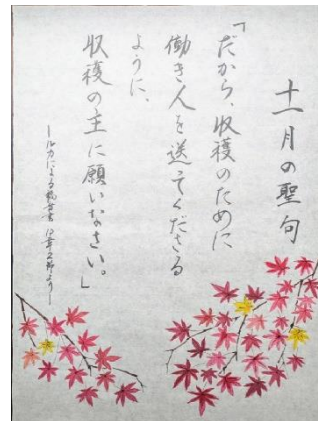 十一月の聖句
「だから、収穫のために
働き人を送ってくださる
ように、
収穫の主に願いなさい。」
―ルカによる福音書 10章2節より―